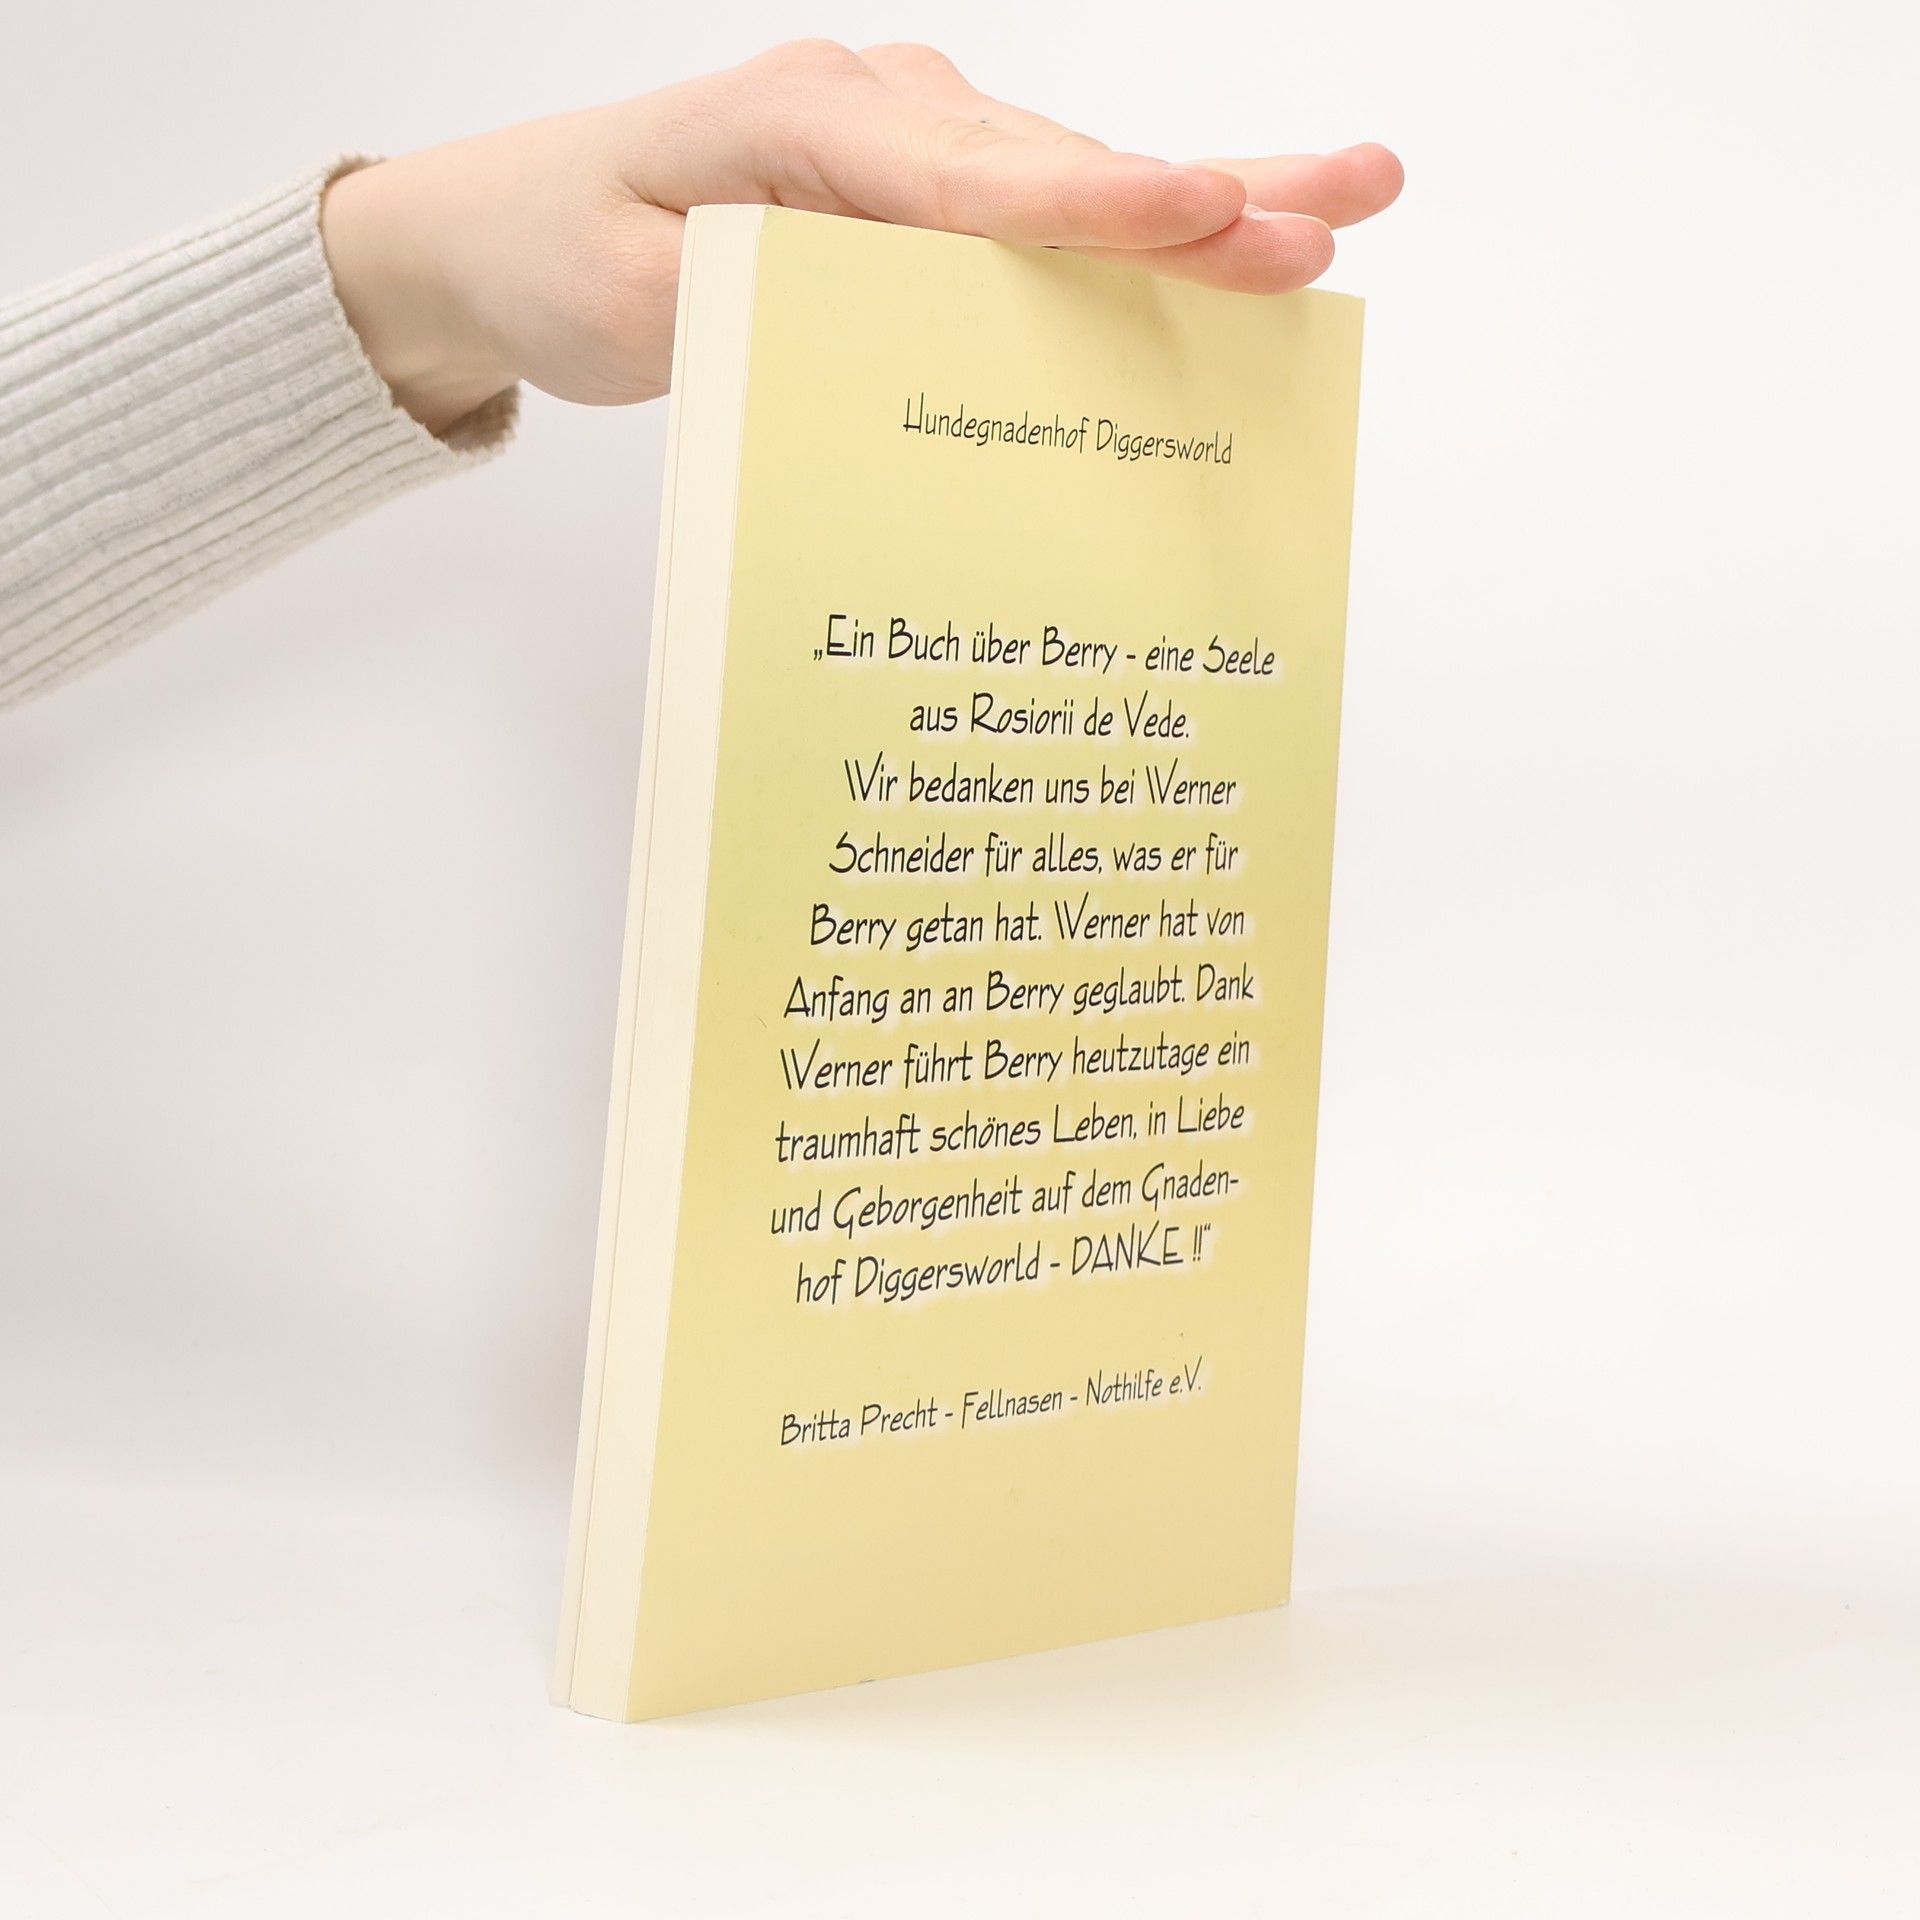 Hundegnadenhof Diggersworld
„Ein Buch über Berry - eine Seele
aus Rosiorii de Vede.
Wir bedanken uns bei Werner
Schneider für alles, was er für
Berry getan hat. Werner hat von
Anfang an an Berry geglaubt. Dank
Werner führt Berry heutzutage ein
traumhaft schönes Leben, in Liebe
und Geborgenheit auf dem Gnaden-
hof Diggersworld - DANKE !!“
Britta Precht - Fellnasen - Nothilfe e.V.